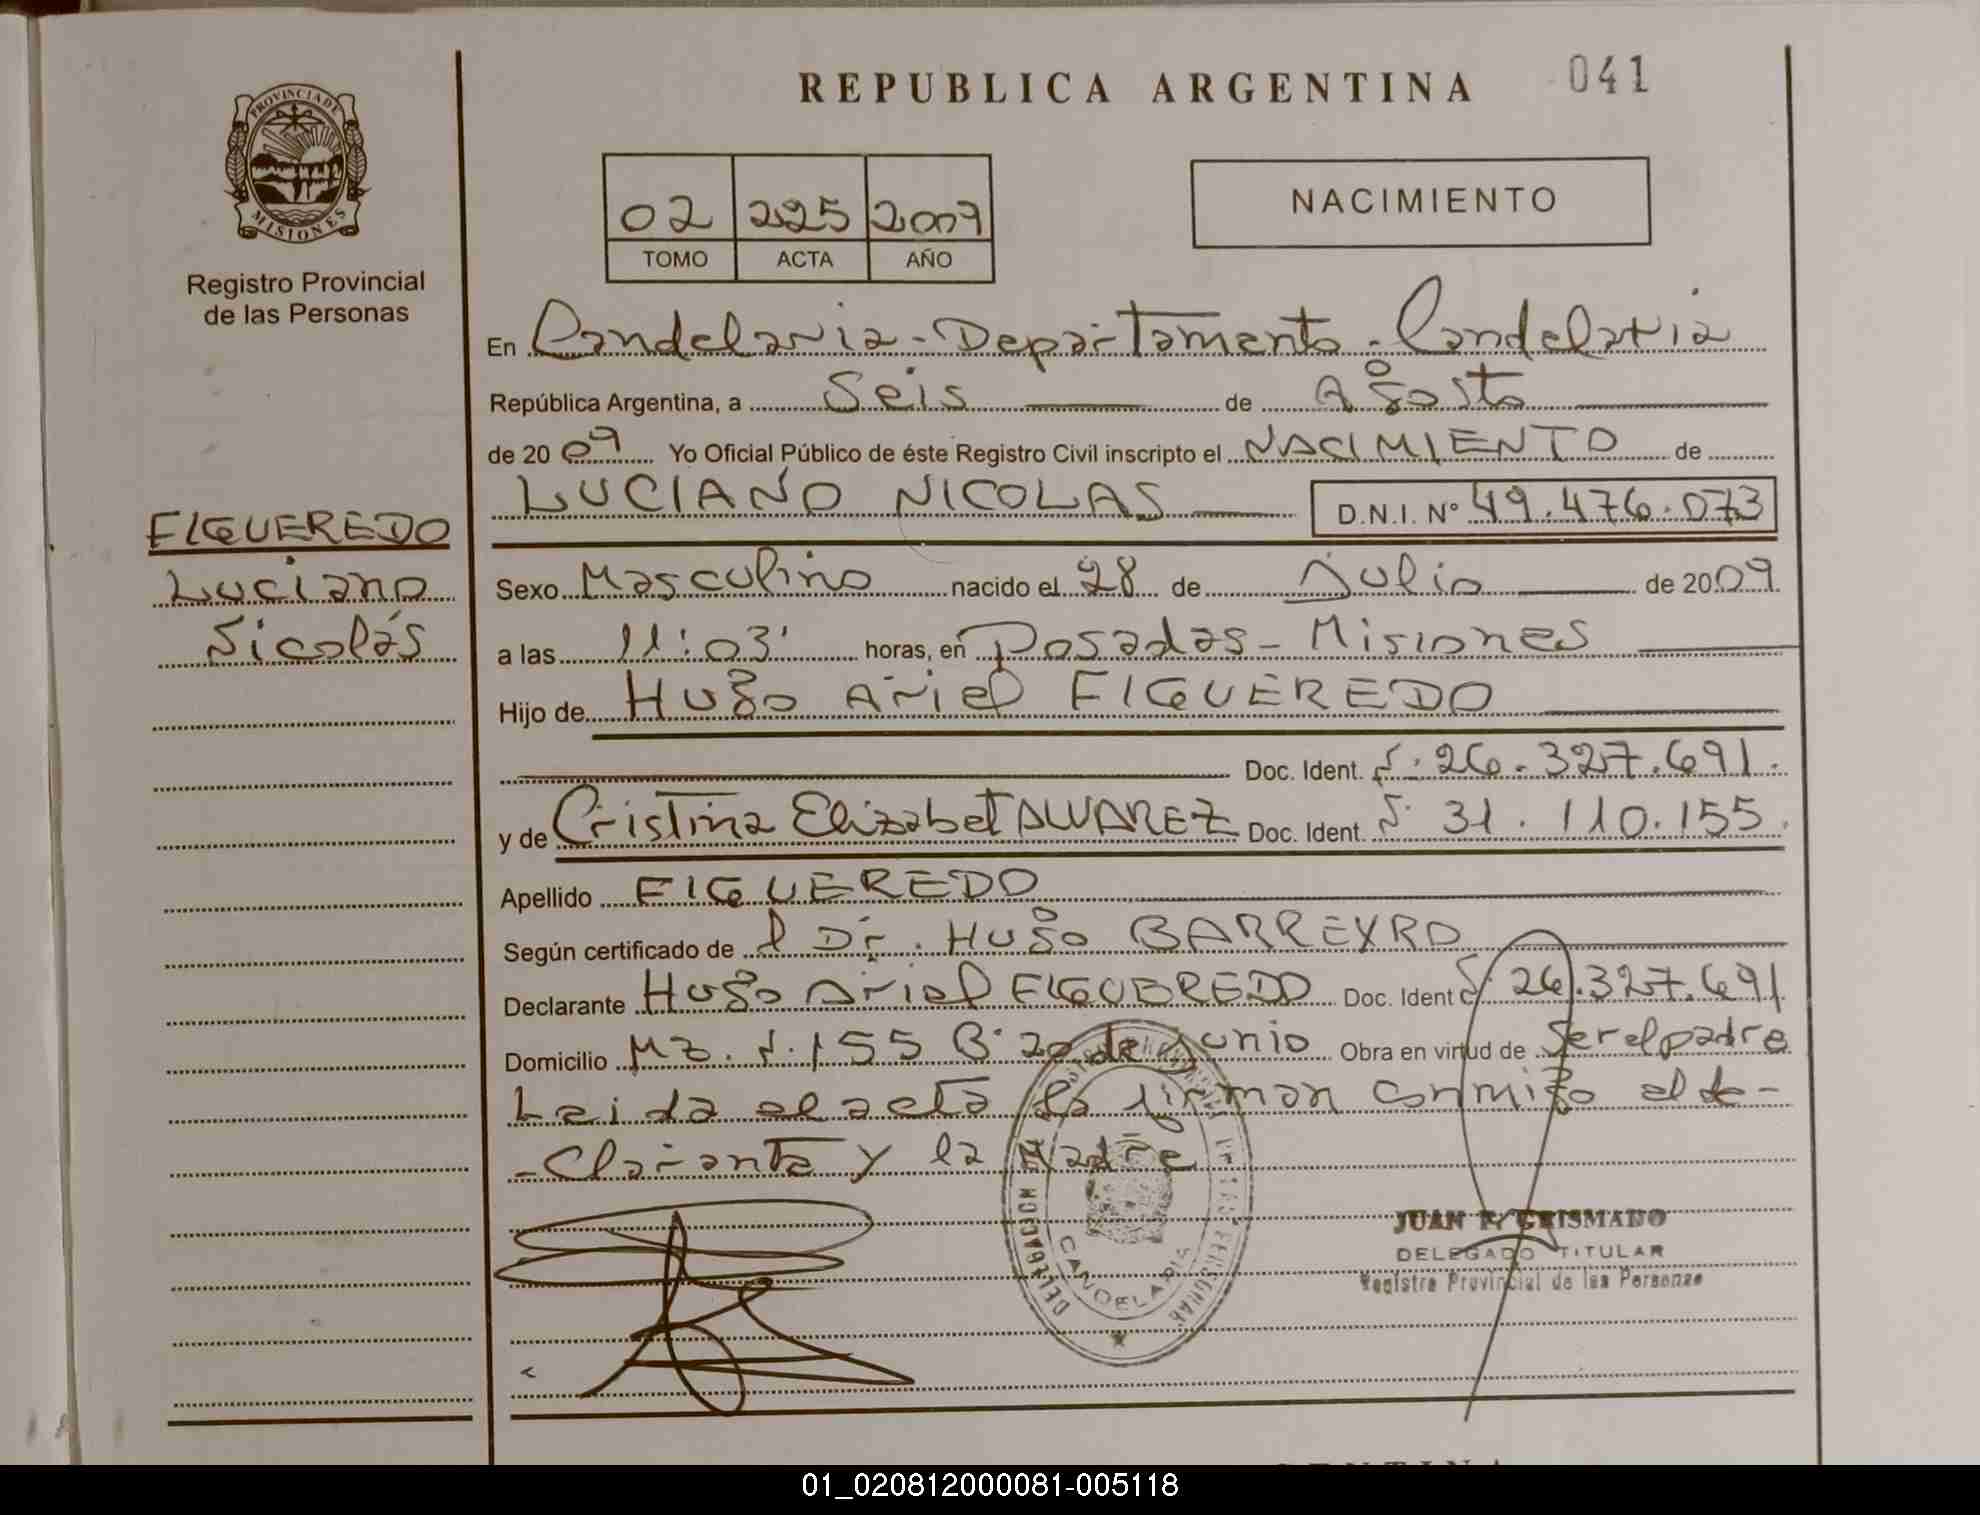 REPUBLICA ARGENTINA 041
PROVINCIA DE MISIONES
Registro Provincial
de las Personas
02 225 2009
TOMO ACTA AÑO
NACIMIENTO
En Candelaria - Departamento - Candelaria
República Argentina, a Seis de Agosto
de 2009 Yo Oficial Público de éste Registro Civil inscripto el NACIMIENTO de
LUCIANO NICOLAS D.N.I. Nº 49.476.073
FIGUEREDO
Luciano
Nicolás
Sexo Masculino nacido el 28 de Julio de 2009
a las 11:03' horas, en Posadas - Misiones
Hijo de Hugo Ariel FIGUEREDO
Doc. Ident. N° 26.327.691.
y de Cristina Elizabet ALVAREZ Doc. Ident. N° 31.110.155.
Apellido FIGUEREDO
Según certificado de l Dr. Hugo BARREYRO
Declarante Hugo Ariel FIGUEREDO Doc. Ident N° 26.327.691
Domicilio Mz. N. 155 B° 20 de Junio Obra en virtud de Ser el padre
Leida el acta la firman conmigo el de-
-clarante y la Madre
DELEGACION CANDELARIA
JUAN F. GRISMADO
DELEGADO TITULAR
Registro Provincial de las Personas
01_020812000081-005118